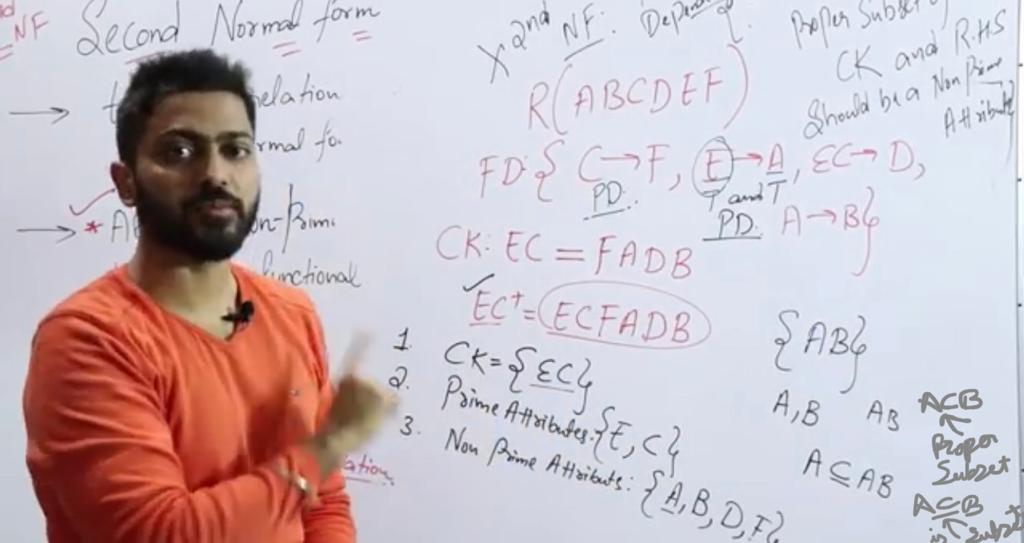 NF
Second Normal form
elation
rmal fo
* A
on-prim
functional
ation.
X 2nd NF: Depend
Proper Subset of
CK and R.HS
Should be a Non Prime
Attribute
R(ABCDEF)
FD:{ C→F, E→A, EC→D,
PD. T and T
PD. A→B}
CK: EC = FADB
✓
EC⁺ = ECFADB
1. CK = {EC}
2. Prime Attributes: {E, C}
3. Non Prime Attributs: {A, B, D, F}
{AB}
A, B AB
A ⊆ AB
A⊂B
↑
Proper
Subset
A⊆B
↑
is Subset